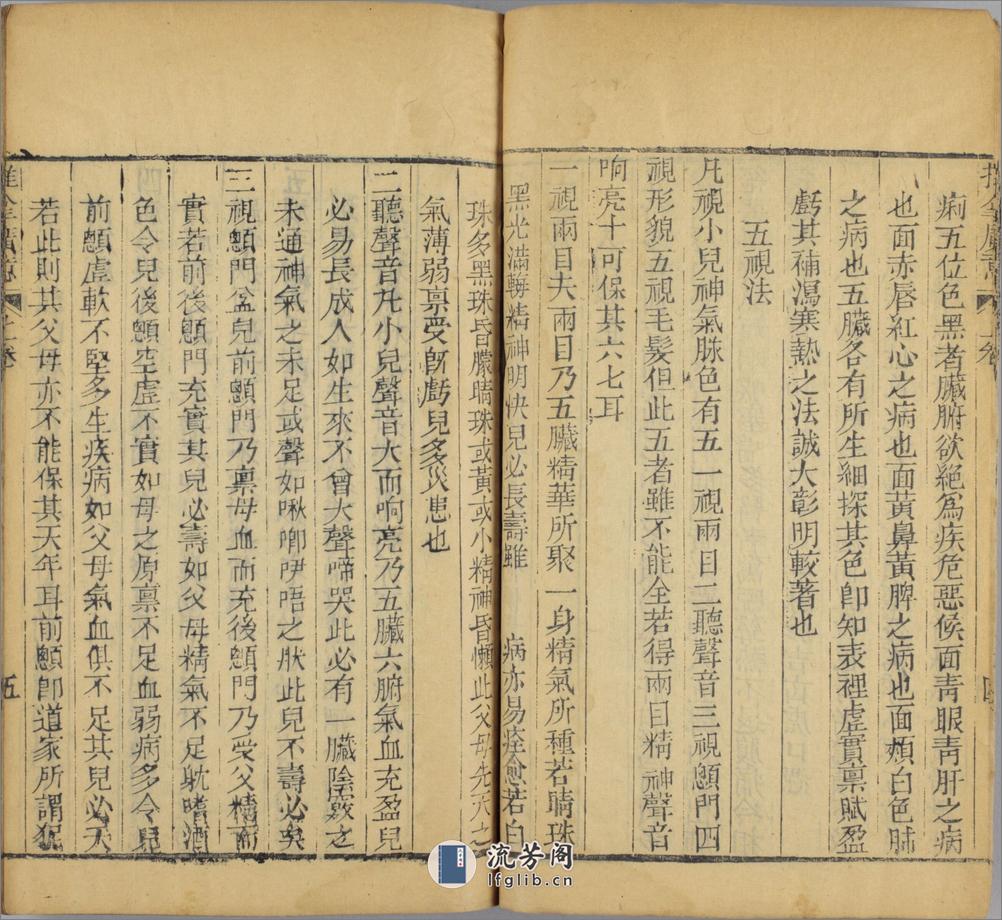 痢五位色黑者臟腑欲絕爲疾危惡候面靑眼靑肝之病
也面赤唇紅心之病也面黃鼻黃脾之病也面頰白色肺
之病也五臟各有所生細探其色卽知表裡虛實禀賦盈
虧其補瀉寒熱之法誠大彰明較著也
五視法
凡視小兒神氣脉色有五一視兩目二聽聲音三視顖門四
視形貌五視毛髮但此五者雖不能全若得兩目精神聲音
响亮十可保其六七耳
一視兩目夫兩目乃五臟精華所聚一身精氣所種若睛珠
黑光滿輪精神明快兒必長壽雖 病亦易痊愈若白
珠多黑珠昏朦睛珠或黃或小精神昏懶此父母先天之
氣薄弱禀受旣虧兒多災患也
二聽聲音凡小兒聲音大而响亮乃五臟六腑氣血充盈兒
必易長成人如生來不曾大聲啼哭此必有一臟陰竅之
未通神氣之未足或聲如啾唧咿唔之狀此兒不壽必矣
三視顖門盆兒前顖門乃禀母血而充後顖門乃受父精而
實若前後顖門充實其兒必壽如父母精氣不足躭嗜酒
色令兒後顖空虛不實如母之原禀不足血弱病多令兒
前顖虛軟不堅多生疾病如父母氣血俱不足其兒必夭
若此則其父母亦不能保其天年耳前顖卽道家所謂泥
上卷
伍
流芳阁
lfglib.cn